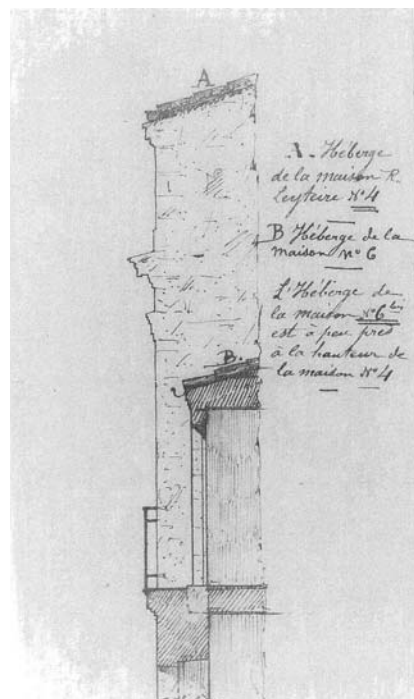 A
A - Héberge
de la maison R.
Leyteire N° 4
B Héberge de la
maison N° 6
L'Héberge de
la maison N° 6 bis
est à peu près
à la hauteur de
la maison N° 4
B.